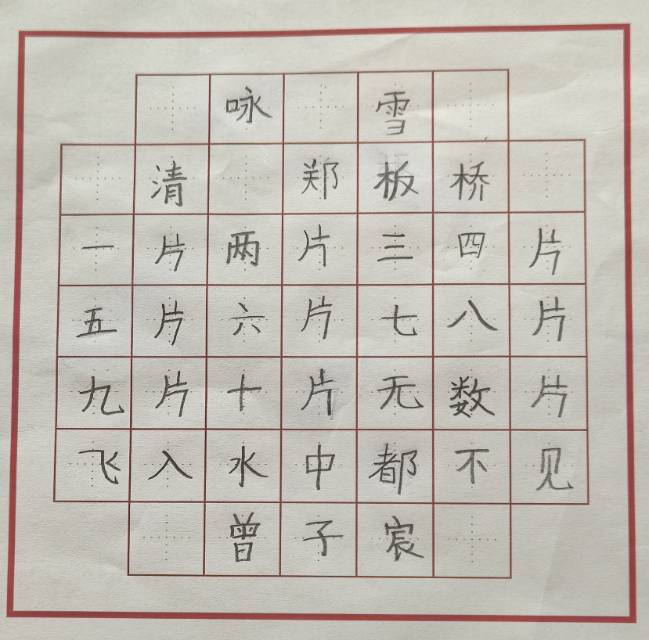 咏雪
清 郑板桥
一片两片三四片
五片六片七八片
九片十片无数片
飞入水中都不见
曾子宸